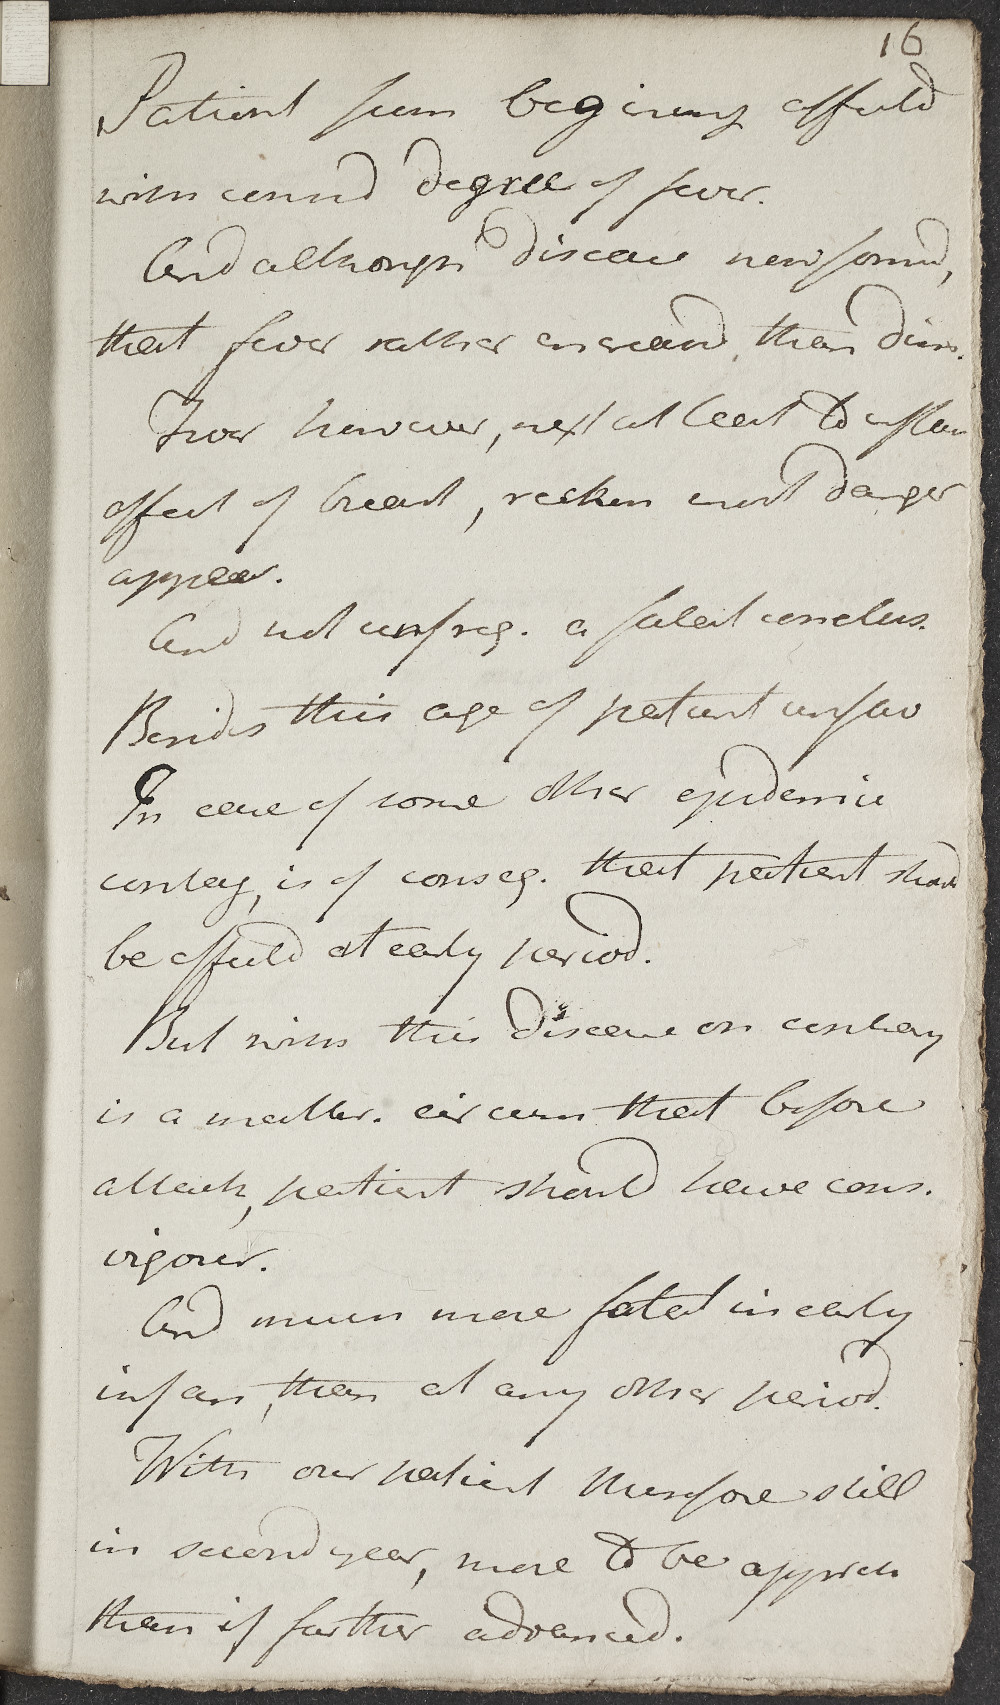 16
Patient from beginning affected
with consid degree of fever.
And although disease now formd,
that fever rather increasd, than dim.
Fever however, next at least to inflam
affect of breast, reckon most danger
appear.
And not unfreq. a fatal conclus.
Besides this age of patient unfav
In case of some other epidemic
contag, is of conseq. that patient should
be affected at early period.
But with this disease on contrary
is a matter. circum that before
attack, patient should have cons.
vigour.
And much more fatal in early
infan, than at any other period.
With our patient therefore still
in second year, more to be appreh
than if farther advanced.